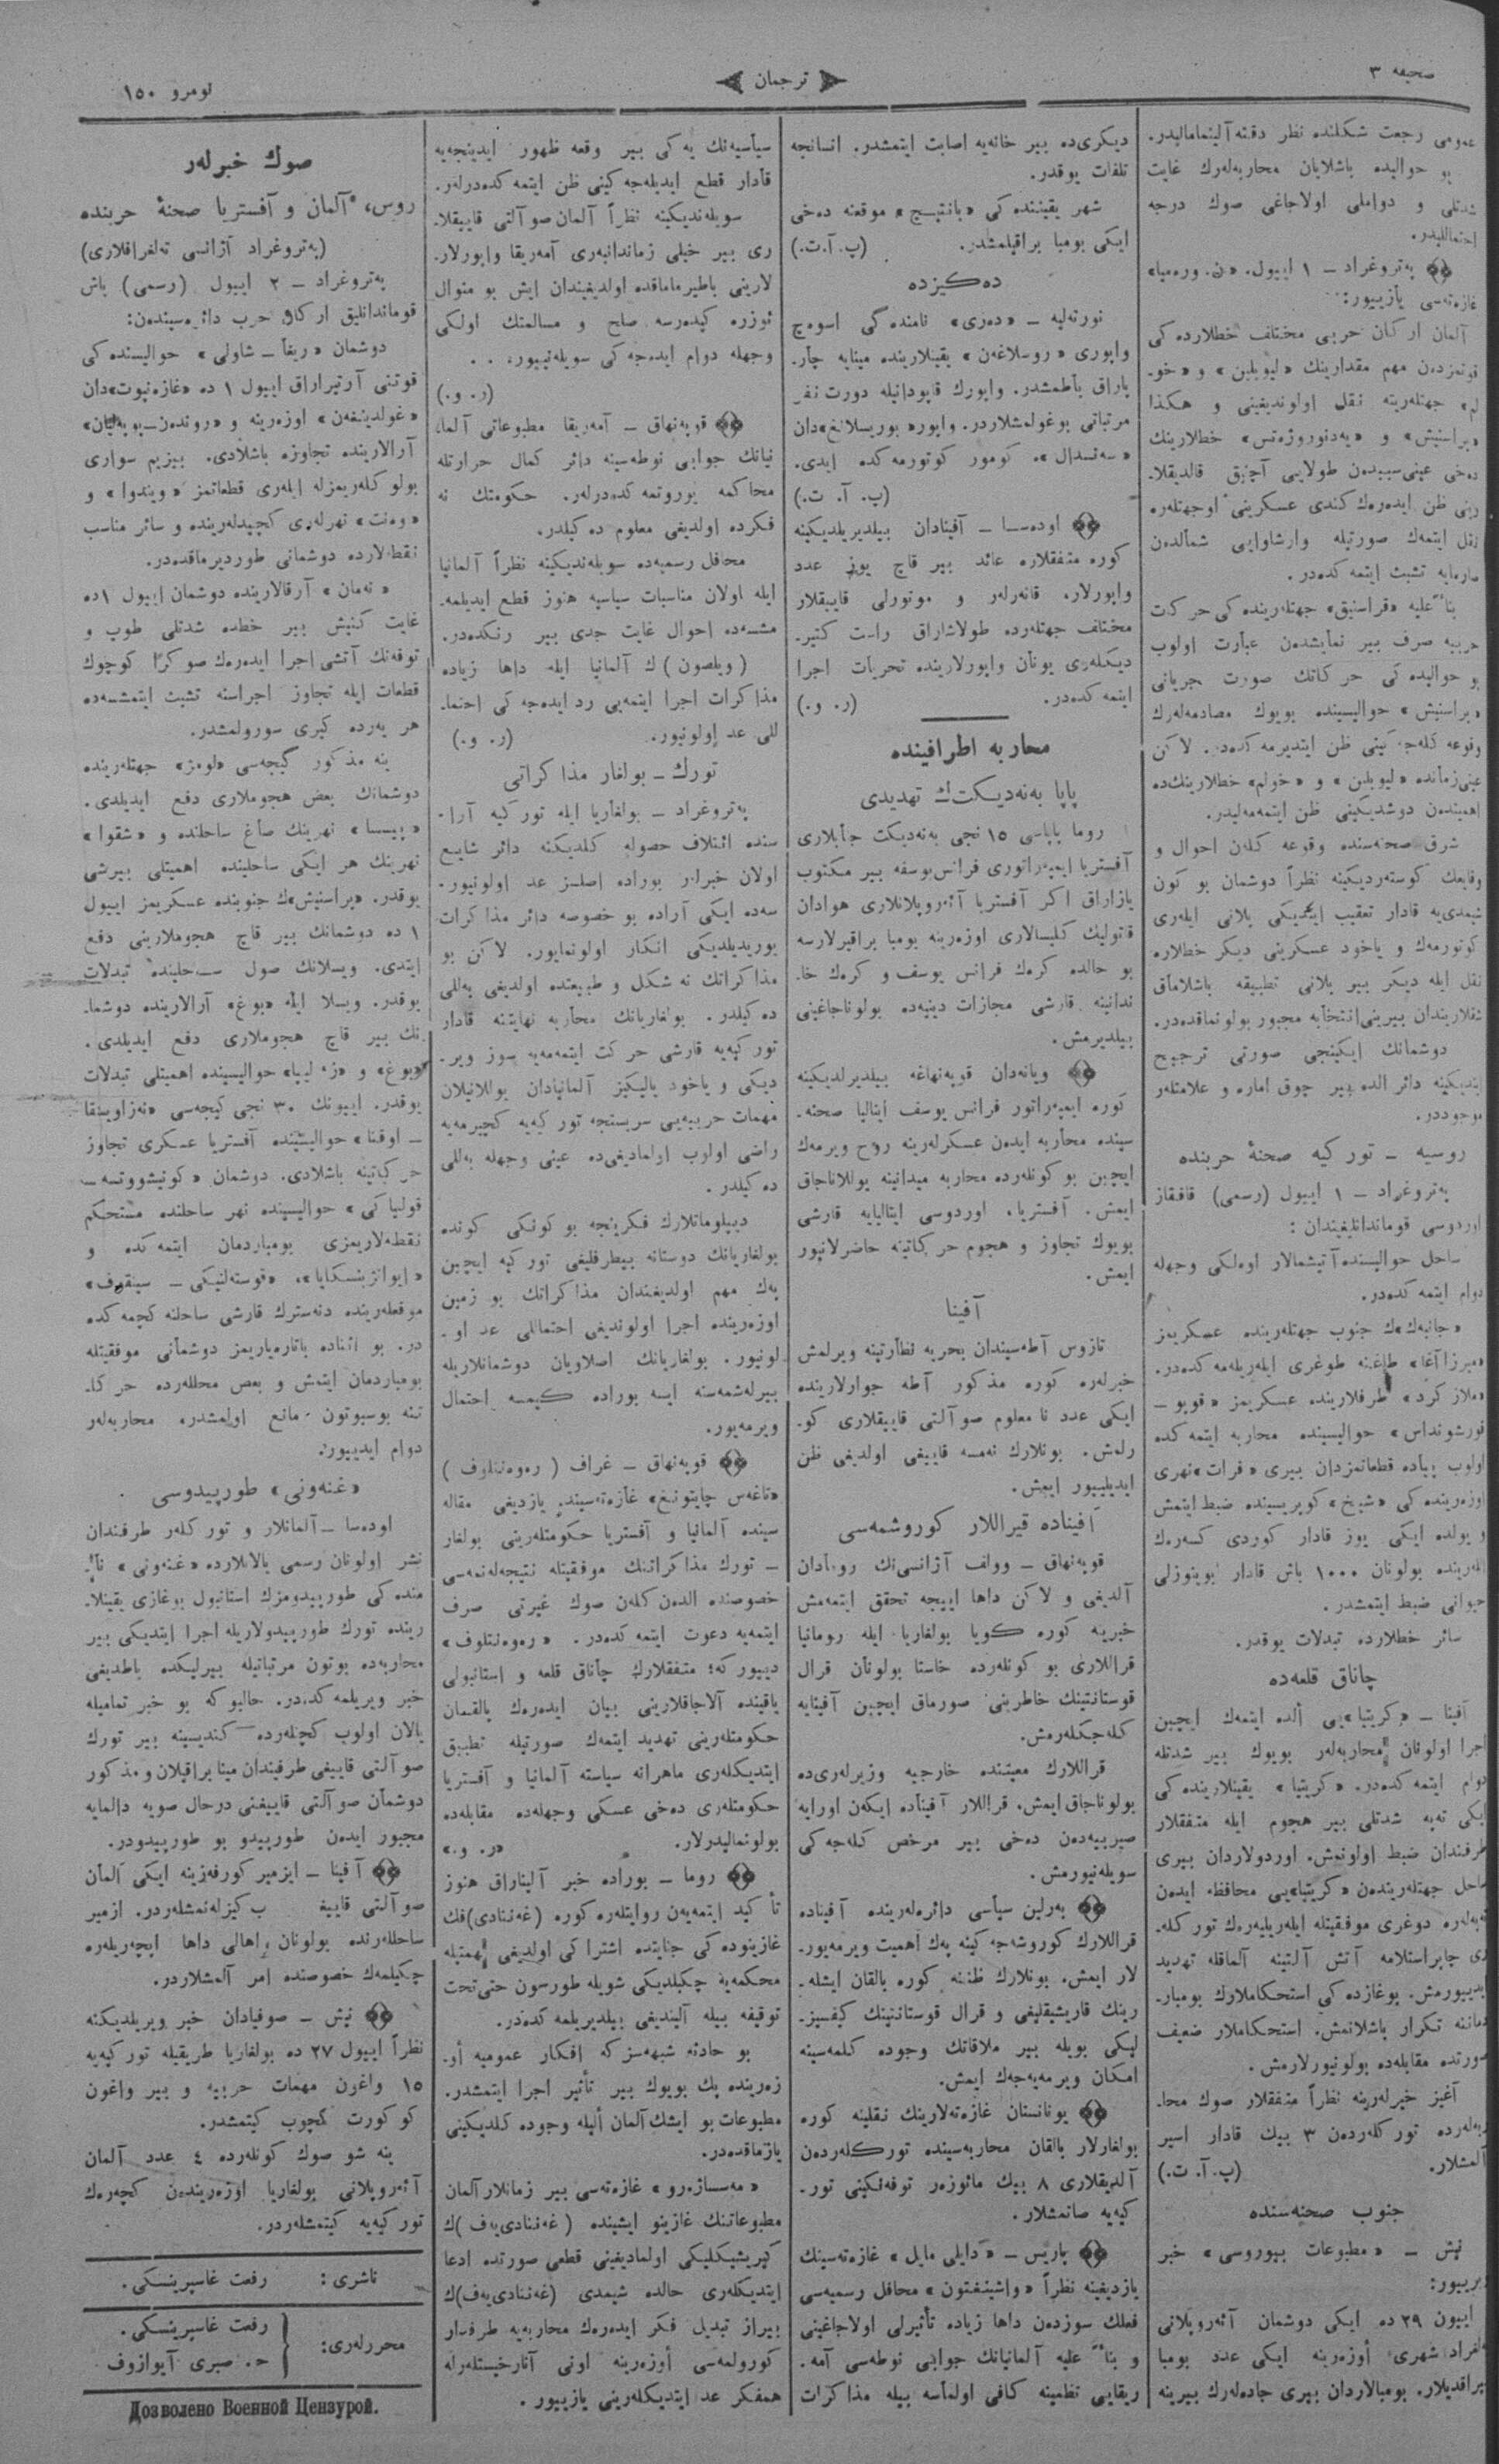 صحیفه ٣
ترجمان
نومرو ١٥٠
عمومی رجعت شکلنده نظر دقته آلینمامالیدر.
بو حوالیده باشلایان محاربه‌لرك غایت
شدتلی و دواملی اولاجاغی صوك درجه
احتماللیدر.
پەتروغراد ـ ١ اییول. «ن. ورەمیا»
غازەتەسی یازییور:
آلمان ارکان حربی مختلف خطلارده کی
قوتمزدن مهم مقدارینك «لیوبلین» و «خو-
لم» جهتلەرینە نقل اولوندیغینی و هکذا
«پراسنیش» و خطلارینك
دەخی عینی سببدەن طولایی آچیق قالدیقلا-
رینی ظن ایدەرەك کندی عسکرینی اوجهتلەرە
نقل ایتمەك صورتیلە وارشاوایی شمالدەن
صارمایە تشبث ایتمە کدەدر.
بناءً علیه «قراسنیق» جهتلەریندە کی حرکات
حربیە صرف بیر نمایشدەن عبارت اولوب
بو حوالیدە کی حرکاتك صورت جریانی
«پراسنیش» حوالیسیندە بویوك مصادمەلەرك
وقوعە کلەجەکینی ظن ایتدیرمە کدەدر. لاکن
عینی زماندە «لیوبلین» و «خولم» خطلارینك دە
اهمیتدن دوشدیکینی ظن ایتمەمەلیدر.
شرق صحنەسندە وقوعە کلەن احوال و
وقایعك کوستەردیکینە نظراً دوشمان بو کون
شیمدییە قادار تعقیب ایتدیکی پلانی ایلەری
کوتورمەك و یاخود عسکرینی دیکر خطلارە
نقل ایلە دیکر بیر پلانی تطبیقە باشلاماق
شقلاریندان بیرینی انتخابە مجبور بولونماقدەدر.
دوشمانك ایکینجی صورتی ترجیح
ایتدیکینە دائر الدە بیر چوق امارە و علامتلەر
موجوددر.
روسیە ـ تورکیە صحنۀ حربندە
پەتروغراد ـ ١ اییول (رسمی) قافقاز
اوردوسی قوماندانلیغیندان :
ساحل حوالیسندە آتیشمالار اوەلکی وجهلە
دوام ایتمە کدەدر.
جنوب جهتلەریندە عسکریمز
«میرزا آغا» طاغینە طوغری ایلەریلەمە کدەدر.
«ملاز کرد» طرفلاریندە عسکریمز «قوپو ـ
حوالیسیندە محاربە ایتمە کدە
اولوب پیادە قطعاتمزدان بیری «فرات» نهری
اوزەریندە کی «شیخ» کوپریسیندە ضبط ایتمش
و یولدە ایکی یوز قادار کوردی کسەرەك
اللەریندە بولونان ١٠٠٠ باش قادار بوینوزلی
حیوانی ضبط ایتمشدر.
سائر خطلاردە تبدلات یوقدر.
چاناق قلعەدە
آفینا ـ «کریتیا»یی ألدە ایتمەك ایچین
اجرا اولونان محاربەلەر بویوك بیر شدتلە
دوام ایتمە کدەدر. «کریتیا» یقینلاریندە کی
ایکی تەپە شدتلی بیر هجوم ایلە متفقلار
طرفندان ضبط اولونمش. اوردولاردان بیری
ساحل جهتلەریندەن «کریتیا»یی محافظە ایدەن
تەپەلەرە دوغری موفقیتلە ایلەریلیەرەك تورکلە-
ری چاپراستلامە آتش آلتینە آلماقلە تهدید
ایدییورمش. بوغازدە کی استحکاملارك بومبار-
دمانینە تکرار باشلانمش. استحکاملار ضعیف
صورتدە مقابلەدە بولونیورلارمش.
آغیز خبرلەرینە نظراً متفقلار صوك محا-
ربەلەردە تورکلەردەن ٣ بیك قادار اسیر
آلمشلار. (پ. آ. ت.)
جنوب صحنەسندە
نیش ـ «مطبوعات بیوروسی» خبر
ویرییور:
اییون ٢٩ دە ایکی دوشمان آئەروپلانی
شهری أوزەرینە ایکی عدد بومبا
براقدیلار. بومبالاردان بیری جادەلەرك بیرینە
دیکری دە بیر خانەیە اصابت ایتمشدر. انسانجە
تلفات یوقدر.
شهر یقینندە کی موقعنە دەخی
ایکی بومبا براقیلمشدر. (پ. آ. ت.)
دەکیزدە
نورتەلیە ـ «دەری» نامندە گی اسوەچ
واپوری «روسلاغەن» یقینلاریندە مینایە چار-
پاراق باطمشدر. واپورك قاپودانیلە دورت نفر
مرتباتی بوغولمشلاردر. واپور
کومور کوتورمە کدە ایدی.
(پ. آ. ت.)
اودەسا ـ آفینادان بیلدیریلدیکینە
کورە متفقلارە عائد بیر قاچ یوز عدد
واپورلار، قاتەرلەر و موتورلی قاییقلار
مختلف جهتلەردە طولاشاراق راست کتیر-
دیکلەری یونان واپورلاریندە تحریات اجرا
ایتمە کدەدر. (ر. و.)
محاربە اطرافیندە
پاپا بەنەدیکت‌ك تهدیدی
روما پاپاسی ١٥ نجی بەنەدیکت جنابلاری
آفستریا ایمپراتوری فرانس یوسفە بیر مکتوب
یازاراق اکر آفستریا آئەروپلانلاری هوادان
قاتولیك کلیسالاری اوزەرینە بومبا براقیرلارسە
بو حالدە کرەك فرانس یوسف و کرەك خا-
ندانینە قارشی مجازات دینیەدە بولوناجاغینی
بیلدیرمش.
ویانەدان قوپەنهاغە بیلدیرلدیکینە
کورە ایمپەراتور فرانس یوسف ایتالیا صحنە-
سیندە محاربە ایدەن عسکرلەرینە روح ویرمەك
ایچین بو کونلەردە محاربە میدانینە یوللاناجاق
ایمش. آفستریا، اوردوسی ایتالیایە قارشی
بویوك تجاوز و هجوم حرکاتینە حاضرلانیور
ایمش.
آفینا
تازوس آطەسیندان بحریە نظارتینە ویرلمش
خبرلەرە کورە مذکور آطە جوارلاریندە
ایکی عدد نا معلوم صو آلتی قاییقلاری کو-
رلمش. بونلارك نەمسە قاییغی اولدیغی ظن
ایدیلییور ایمش.
آفینادە قیراللار کوروشمەسی
قوپەنهاق ـ وولف آژانسی‌نك رومادان
آلدیغی و لاکن داها اییجە تحقق ایتمەمش
خبرینە کورە کویا بولغاریا ایلە رومانیا
قراللاری بو کونلەردە خاستا بولونان قرال
قوستانتینك خاطرینی صورماق ایچین آفینایە
کلەجکلەرمش.
قراللارك معیتندە خارجیە وزیرلەری دە
بولوناجاق ایمش. قراللار آفینادە ایکەن اورایە
صیربییەدەن دەخی بیر مرخص کلەجە کی
سویلەنیورمش.
بەرلین سیاسی دائرەلەریندە آفینادە
قراللارك کوروشەجەکینە پەك اهمیت ویرمەیور-
لار ایمش. بونلارك ظننە کورە بالقان ایشلە-
رینك قاریشیقلیغی و قرال قوستانتینك کیفسیز-
لیکی بویلە بیر ملاقاتك وجودە کلمەسینە
امکان ویرمەیەجەك ایمش.
یونانستان غازەتەلارینك نقلینە کورە
بولغارلار بالقان محاربەسیندە تورکلەردەن
آلدیقلاری ٨ بیك مائوزەر توفەنکینی تور-
کیەیە صاتمشلار.
پاریس ـ «دایلی مایل» غازەتەسینك
یازدیغینە نظراً «واشینغتون» محافل رسمیەسی
فعلك سوزدەن داها زیادە تأثیرلی اولاجاغینی
و بناءً علیه آلمانیانك جوابی نوطەسی آمە-
ریقایی تطمینە کافی اولماسە بیلە مذاکرات
سیاسیەنك یە کی بیر وقعە ظهور ایدینجەیە
قادار قطع ایدیلەجە کینی ظن ایتمە کدەدرلەر.
سویلەندیکینە نظراً آلمان صو آلتی قاییقلا-
ری بیر خیلی زماندانبەری آمەریقا واپورلا-
رینی باطیرماماقدە اولدیغیندان ایش بو منوال
ئوزرە کیدەرسە صلح و مسالمتك اولکی
وجهلە دوام ایدەجە کی سویلەنییور. . .
(ر. و.)
قوپەنهاق ـ آمەریقا مطبوعاتی آلما-
نیانك جوابی نوطەسینە دائر کمال حرارتلە
محاکمە یوروتمە کدەدرلەر. حکومتك نە
فکردە اولدیغی معلوم دە کیلدر.
محافل رسمیەدە سویلەندیکینە نظراً آلمانیا
ایلە اولان مناسبات سیاسیە هنوز قطع ایدیلمە-
مشسەدە احوال غایت جدی بیر رنکدەدر.
(ویلصون)ك آلمانیا ایلە داها زیادە
مذاکرات اجرا ایتمەیی رد ایدەجە کی احتما-
للی عد اولونیور. (ر. و.)
تورك ـ بولغار مذاکراتی
پەتروغراد ـ بولغاریا ایلە تورکیە آرا-
سندە ائتلاف حصولە کلدیکینە دائر شایع
اولان خبرلر بورادە اصلسز عد اولونیور.
سەدە ایکی آرادە بو خصوصە دائر مذاکرات
یوریدیلدیکی انکار اولونمایور. لاکن بو
مذاکراتك نە شکل و طبیعتدە اولدیغی بەللی
دە کیلدر. بولغاریانك محاربە نهایتنە قادار
تورکیەیە قارشی حرکت ایتمەمەیە سوز ویر-
دیکی و یاخود یالیکیز آلمانیادان یوللانیلان
مهمات حربیەیی سربستجە تورکیەیە کچیرمەیە
راضی اولوب اولمادیغی دە عینی وجهلە بەللی
دە کیلدر.
دیپلوماتلارك فکرینجە بو کونکی کوندە
بولغاریانك دوستانە بیطرفلیغی تورکیە ایچین
پەك مهم اولدیغندان مذاکراتك بو زمین
اوزەریندە اجرا اولوندیغی احتماللی عد او-
لونیور. بولغاریانك اصلاویان دوشمانلاریلە
بیرلەشمەسنە ایسە بورادە کیمسە احتمال
ویرمەیور.
قوپەنهاق ـ غراف (رەوەنتلوف)
غازەتەسیندە یازدیغی مقالە
سیندە آلمانیا و آفستریا حکومتلەرینی بولغار
ـ تورك مذاکراتنك موفقیتلە نتیجەلەنمەسی
خصوصندە الدەن کلەن صوك غیرتی صرف
ایتمەیە دعوت ایتمە کدەدر. «رەوەنتلوف»
دییور کە: متفقلارك چاناق قلعە و استانبولی
یاقیندە آلاجاقلارینی بیان ایدەرەك بالقان
حکومتلەرینی تهدید ایتمەك صورتیلە تطبیق
ایتدیکلەری ماهرانە سیاستە آلمانیا و آفستریا
حکومتلەری دەخی عسکی وجهلەدە مقابلەدە
بولونمالیدرلار. «ر. و.»
روما ـ بورادە خبر آلیناراق هنوز
تأکید ایتمەیەن روایتلەرە کورە (غەننادی)نك
غازینودە کی جنایتدە اشترا کی اولدیغی تهمتیلە
محکمەیە چکیلدیکی شویلە طورسون حتی تحت
توقیفە بیلە آلیندیغی بیلدیریلمە کدەدر.
بو حادثە شبهەسز کە افکار عمومیە أو-
زەریندە پك بویوك بیر تأثیر اجرا ایتمشدر.
مطبوعات بو ایشك آلمان ألیلە وجودە کلدیکینی
یازماقدەدر.
«مەسساژەرو» غازەتەسی بیر زمانلار آلمان
مطبوعاتنك غازینو ایشیندە (غەننادییەف)ك
کیریشیکلیکی اولمادیغینی قطعی صورتدە ادعا
ایتدیکلەری حالدە شیمدی (غەننادییەف)ك
بیراز تبدیل فکر ایدەرەك محاربەیە طرفدار
کورولمەسی أوزەرینە اونی آنارخیستلەرلە
همفکر عد ایتدیکلەرینی یازییور.
صوك خبرلەر
روس، آلمان و آفستریا صحنۀ حربندە
(پەتروغراد آژانسی تەلغرافلاری)
پەتروغراد ـ ٢ اییول (رسمی) باش
قوماندانلیق ارکان حرب دائرەسیندەن:
دوشمان «ریغا ـ شاولی» حوالیسندە کی
قوتنی آرتیراراق اییول ١ دە دان
«غولدینغەن» اوزەرینە و
آرالاریندە تجاوزە باشلادی. بیزیم سواری
بولوکلەریمزلە ایلەری قطعاتمز «ویندوا» و
«وەنت» نهرلەری کچیدلەریندە و سائر مناسب
نقطەلاردە دوشمانی طوردیرماقدەدر.
«نەمان» آرقالاریندە دوشمان اییول ١دە
غایت کنیش بیر خطدە شدتلی طوپ و
توفەنك آتشی اجرا ایدەرەك صوکرا کوچوك
قطعات ایلە تجاوز اجراسنە تشبث ایتمشسەدە
هر یەردە کیری سورولمشدر.
ینە مذکور گیجەسی «لومز» جهتلەریندە
دوشمانك بعض هجوملاری دفع ایدیلدی.
«پیسسا» نهرینك صاغ ساحلندە و «شقوا»
نهرینك هر ایکی ساحلیندە اهمیتلی بیرشی
یوقدر. «پراسنیش»ك جنوبندە عسکریمز اییول
١ دە دوشمانك بیر قاچ هجوملارینی دفع
ایتدی. ویسلانك صول ساحلیندە تبدلات
یوقدر. ویسلا ایلە «بوغ» آرالاریندە دوشما-
نك بیر قاچ هجوملاری دفع ایدیلدی.
«بوغ» و حوالیسیندە اهمیتلی تبدلات
یوقدر. اییونك ٣٠ نجی کیجەسی
ـ اوقنا» حوالیسیندە آفستریا عسکری تجاوز
حرکاتینە باشلادی. دوشمان
حوالیسیندە نهر ساحلندە مستحکم
نقطەلاریمزی بومباردمان ایتمە کدە و
موقعلەریندە دنەسترك قارشی ساحلنە کچمە کدە
در. بو اثنادە باتارەیاریمز دوشمانی موفقیتلە
بومباردمان ایتمش و بعض محللەردە حرکا-
تینە بوسبوتون مانع اولمشدر، محاربەلەر
دوام ایدییور.
«غنەونی» طورپیدوسی
اودەسا ـ آلمانلار و تورکلەر طرفندان
نشر اولونان رسمی یالانلاردە «غنەونی» نا-
مندە کی طورپیدومزك استانبول بوغازی یقینلا-
ریندە تورك طورپیدولاریلە اجرا ایتدیکی بیر
محاربەدە بوتون مرتباتیلە بیرلیکدە باطدیغی
خبر ویریلمە کدەدر. حالبو کە بو خبر تمامیلە
یالان اولوب کچلەردە کندیسینە بیر تورك
صو آلتی قاییغی طرفیندان مینا براقیلان و مذکور
دوشمان صو آلتی قاییغنی درحال صویە دالمایە
مجبور ایدەن طورپیدو بو طورپیدودر.
آفینا ـ ایزمیر کورفەزینە ایکی آلمان
صو آلتی قاییغی کیزلەنمشلەردر. ازمیر
ساحللەرندە بولونان اهالی داها ایچەریلەرە
چکیلمەك خصوصندە امر آلمشلاردر.
نیش ـ صوفیادان خبر ویریلدیکنە
نظراً اییول ٢٧ دە بولغاریا طریقیلە تورکیەیە
١٥ واغون مهمات حربیە و بیر واغون
کوکورت کچوب کیتمشدر.
ینە شو صوك کونلەردە ٤ عدد آلمان
آئەروپلانی بولغاریا اوزەریندەن کچەرەك
تورکیەیە کیتمشلەردر.
ناشری : رفعت غاسپرینسکی.
محررلەری: رفعت غاسپرینسکی.
ح. صبری آیوازوف
Дозволено Военной Цензурой.